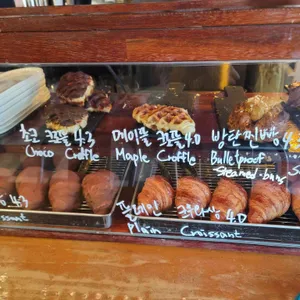 초코 크로플 4.3
Choco Croffle
메이플 크로플 4.0
Maple Croffle
방탄찐빵 4
Bulletproof
Steamed-buns
4.3
ssant
플레인 크로와상 4.0
Plain Croissant